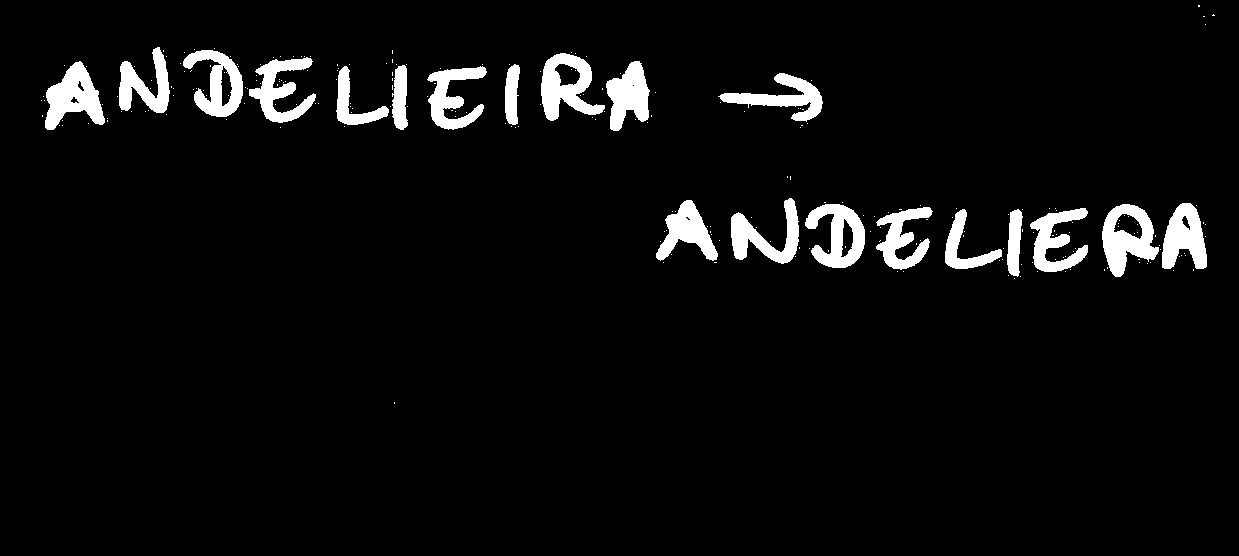 ANDELIEIRA →
ANDELIERA